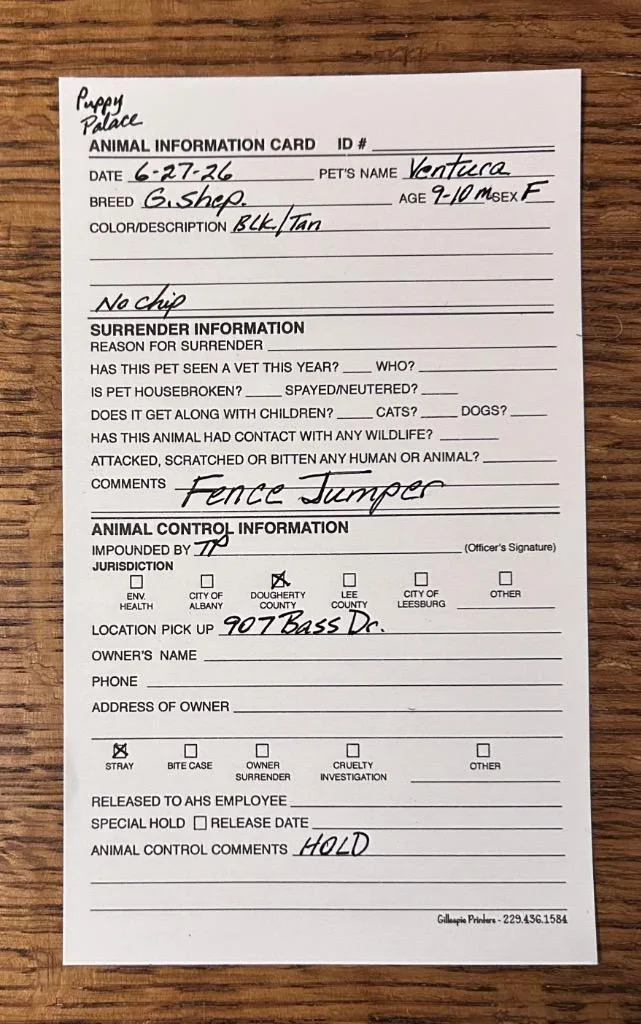 Puppy
Palace
ANIMAL INFORMATION CARD ID #
DATE 6-27-26 PET'S NAME Ventura
BREED G. Shep. AGE 9-10 m SEX F
COLOR/DESCRIPTION BLK/Tan
No chip
SURRENDER INFORMATION
REASON FOR SURRENDER
HAS THIS PET SEEN A VET THIS YEAR? WHO?
IS PET HOUSEBROKEN? SPAYED/NEUTERED?
DOES IT GET ALONG WITH CHILDREN? CATS? DOGS?
HAS THIS ANIMAL HAD CONTACT WITH ANY WILDLIFE?
ATTACKED, SCRATCHED OR BITTEN ANY HUMAN OR ANIMAL?
COMMENTS Fence Jumper
ANIMAL CONTROL INFORMATION
IMPOUNDED BY (Officer's Signature)
JURISDICTION
ENV. HEALTH CITY OF ALBANY DOUGHERTY COUNTY LEE COUNTY CITY OF LEESBURG OTHER
LOCATION PICK UP 907 Bass Dr.
OWNER'S NAME
PHONE
ADDRESS OF OWNER
STRAY BITE CASE OWNER SURRENDER CRUELTY INVESTIGATION OTHER
RELEASED TO AHS EMPLOYEE
SPECIAL HOLD RELEASE DATE
ANIMAL CONTROL COMMENTS HOLD
Gillespie Printers - 229.436.1584